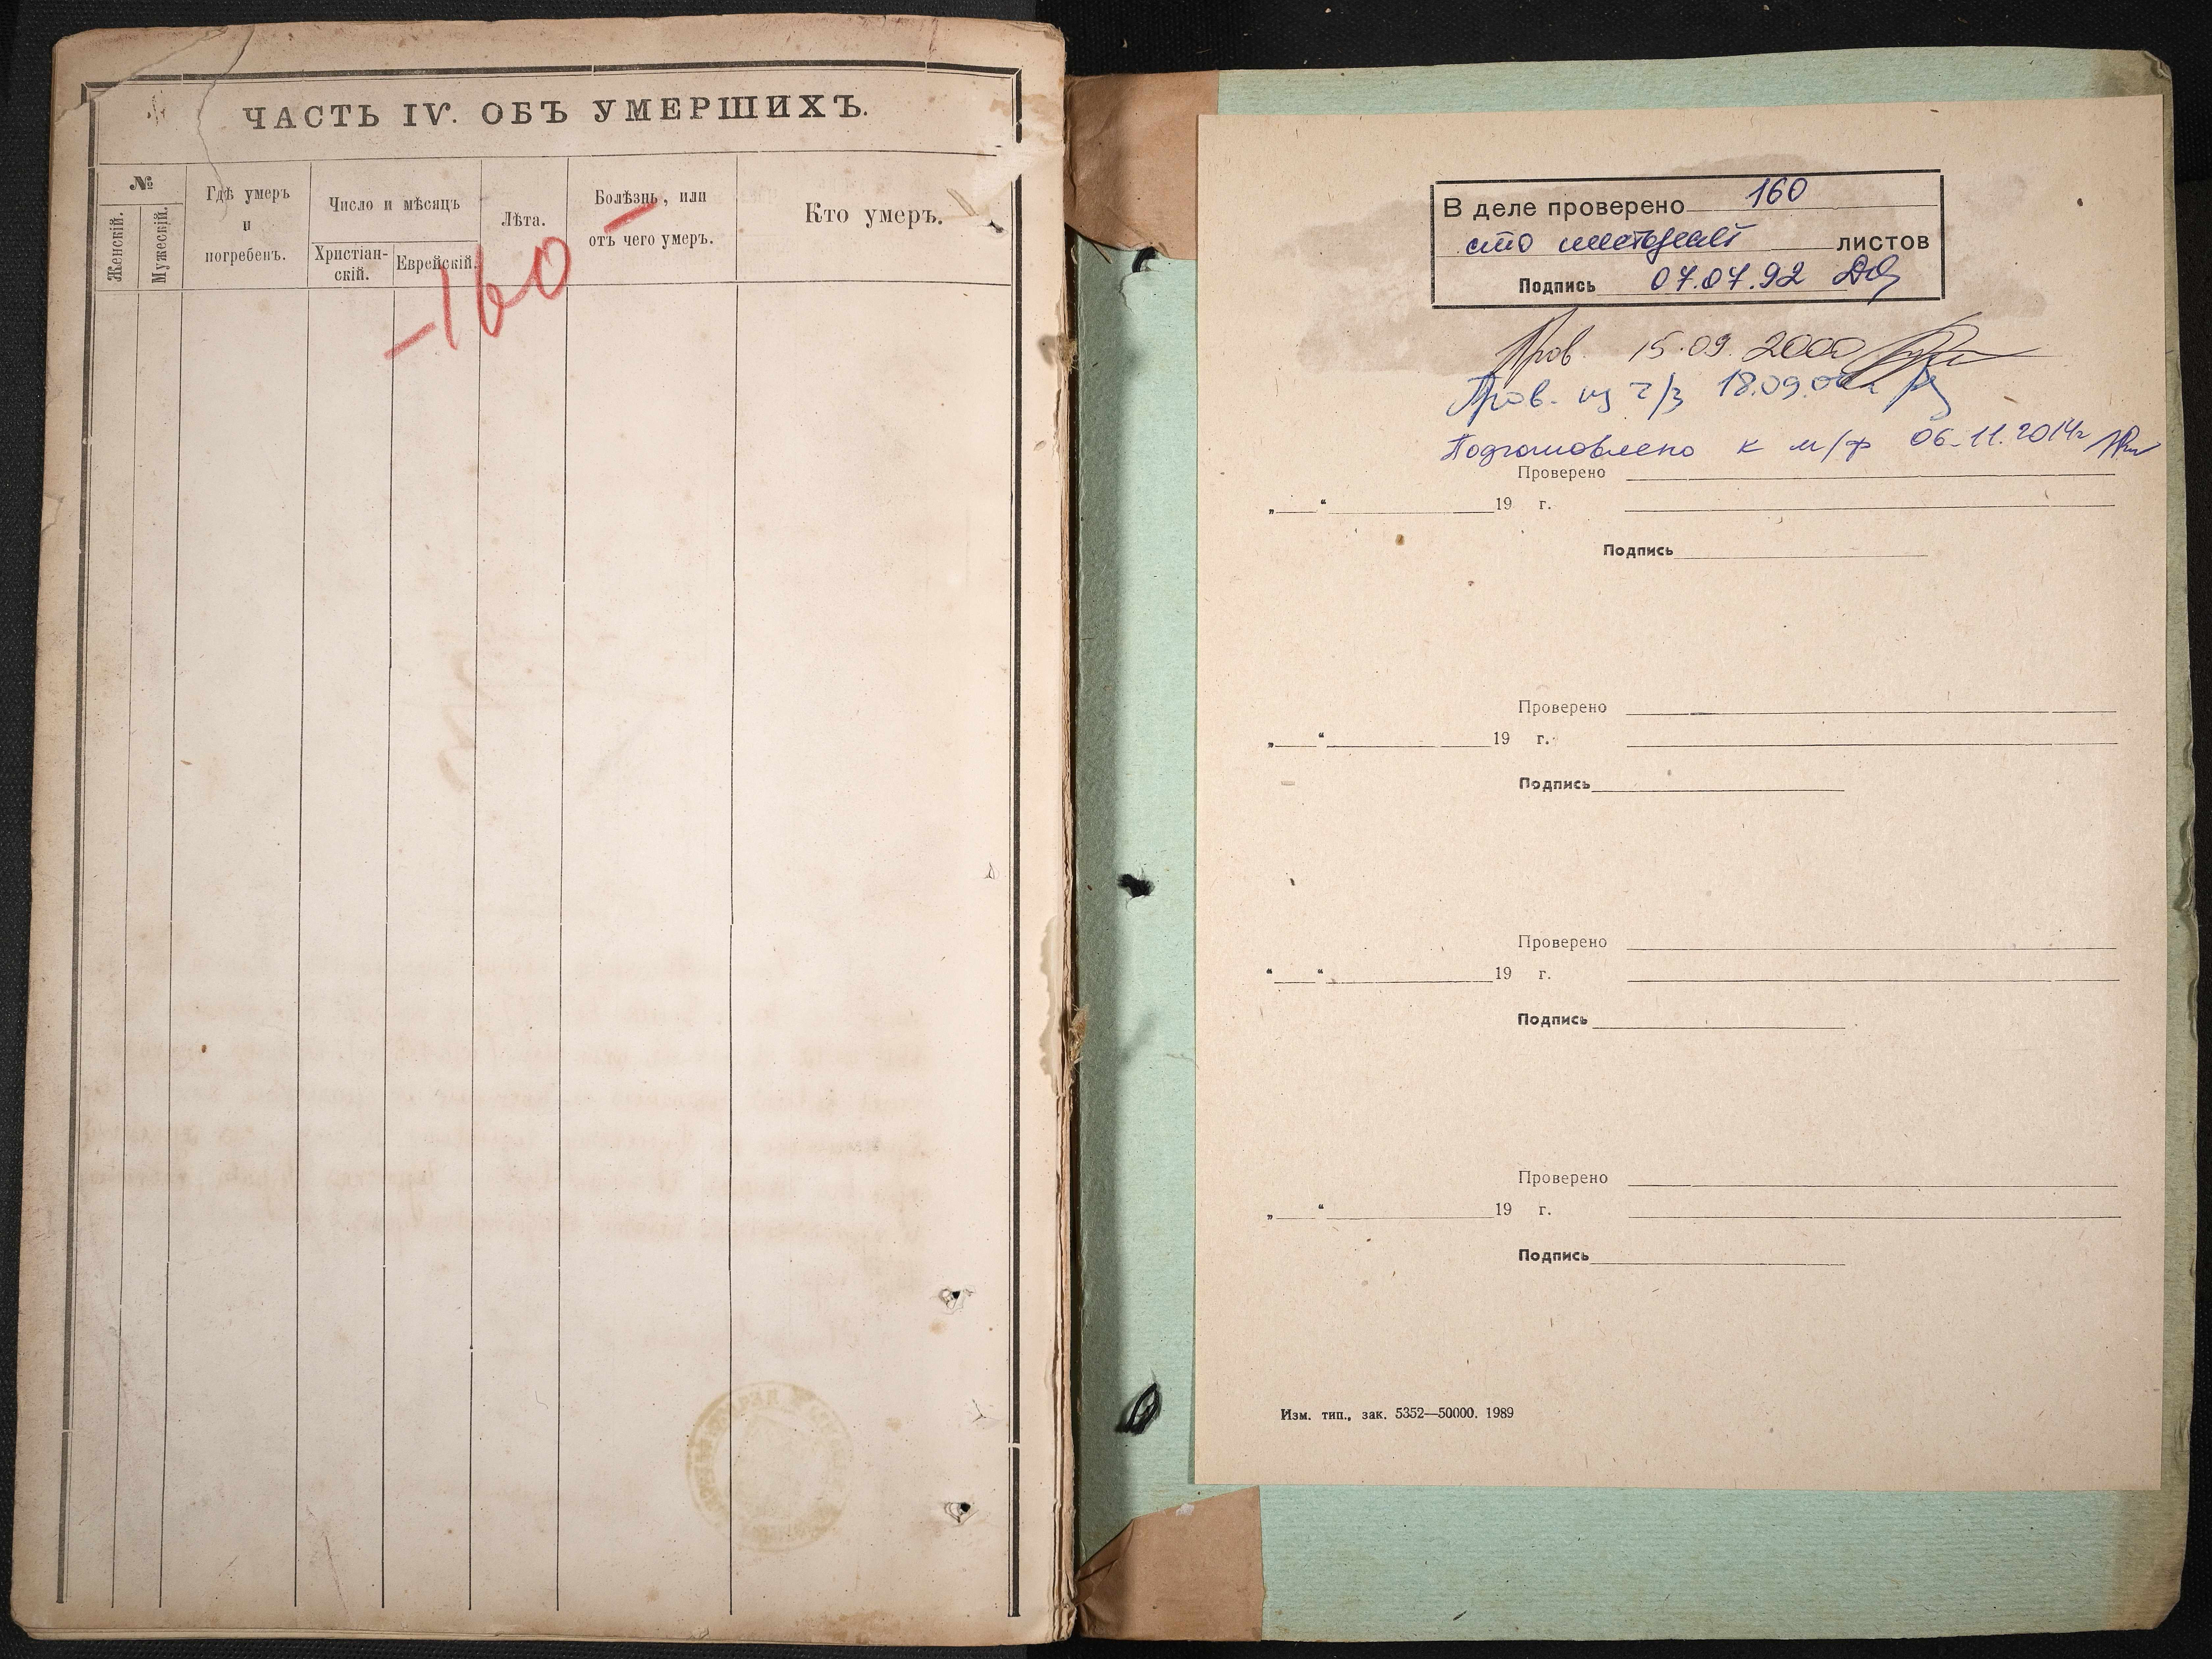 ЧАСТЬ IV. ОБЪ УМЕРШИХЪ.
№
Женскій.
Мужескій.
Гдѣ умеръ
и
погребенъ.
Число и мѣсяцъ
Христіан-
скій.
Еврейскій.
Лѣта.
Болѣзнь, или
отъ чего умеръ.
Кто умеръ.
-160-
В деле проверено 160
сто шестьдесят листов
Подпись 07.07.92
Пров. 15.09.2000
Пров. из ч/з 18.09.
Подготовлено к м/ф 06.11.2014г
Проверено
„ “ 19 г.
Подпись
Проверено
„ “ 19 г.
Подпись
Проверено
“ “ 19 г.
Подпись
Проверено
„ “ 19 г.
Подпись
Изм. тип., зак. 5352—50000. 1989